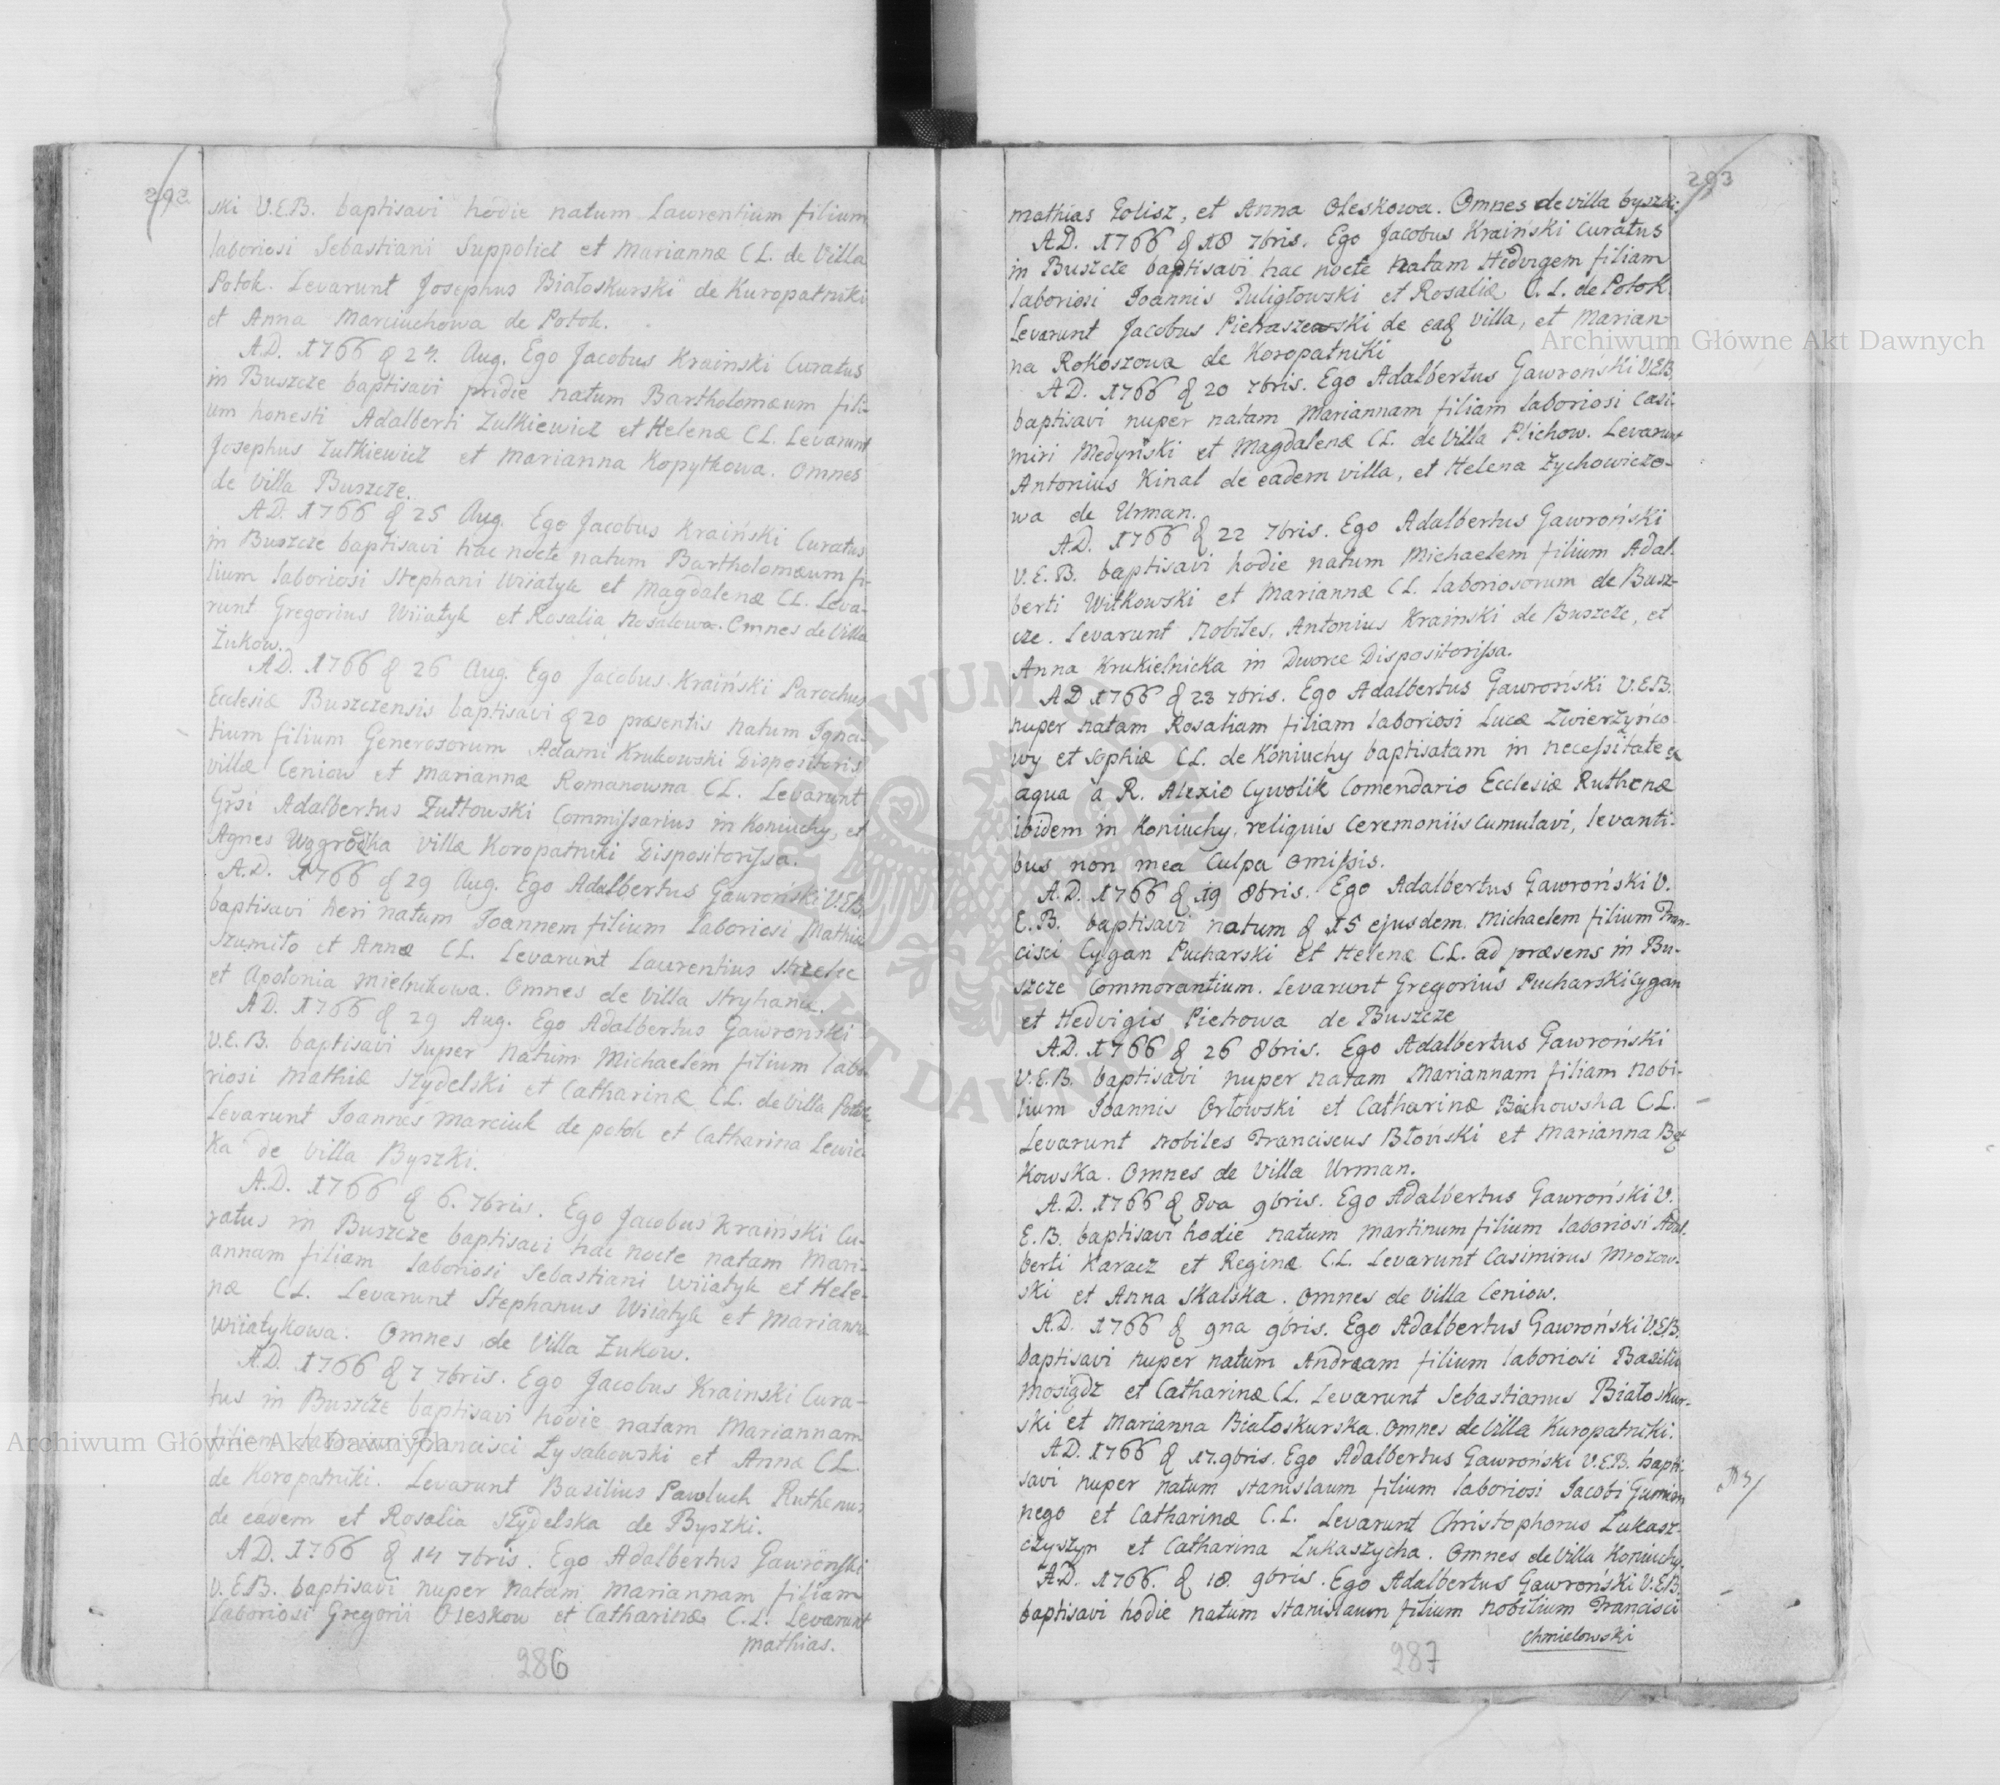 292
ski V.E.B. baptisavi hodie natum Laurentium filium
laboriosi Sebastiani Suppolicz et Mariannæ CL. de Villa
Potok. Levarunt Josephus Białoskurski de Kuropatniki
et Anna Marciuchowa de Potok.
A.D. 1766 d 24. Aug. Ego Jacobus Kraiński Curatus
in Buszcze baptisavi pridie natum Bartholomæum fili-
um honesti Adalberti Zulkiewicz et Helenæ CL. Levarunt
Josephus Zulkiewicz et Marianna Kopytkowa. Omnes
de Villa Buszcze.
A.D. 1766 d 25 Aug. Ego Jacobus Kraiński Curatus
in Buszcze baptisavi hac nocte natum Bartholomæum fi-
lium laboriosi Stephani Wiiatyk et Magdalenæ CL. Leva-
runt Gregorius Wiiatyk et Rosalia Nosalowa. Omnes de Villa
Żukow.
A.D. 1766 d 26 Aug. Ego Jacobus Kraiński Parochus
Ecclesiæ Buszczensis baptisavi d 20 præsentis natum Igna-
tium filium Generosorum Adami Krukowski Dispositoris
villæ Ceniow et Mariannæ Romanowna CL. Levarunt
Gr̃si Adalbertus Zułtowski Commissarius in Koniuchy, et
Agnes villæ Koropatniki Dispositorissa.
A.D. 1766 d 29 Aug. Ego Adalbertus Gawroński V.E.B.
baptisavi heri natum Joannem filium laboriosi Mathiæ
Szumiło et Annæ CL. Levarunt Laurentius Strzelec
et Apolonia Mielnikowa. Omnes de Villa Stryhance.
A.D. 1766 d 29 Aug. Ego Adalbertus Gawronski
V.E.B. baptisavi super natum Michaelem filium labo-
riosi Mathiæ Szydelski et Catharinæ CL. de Villa Potok
Levarunt Joannes Marciuk de potok et Catharina Lewic-
ka de Villa Byszki.
A.D. 1766 d 6. 7bris. Ego Jacobus Kraiński Cu-
ratus in Buszcze baptisavi hac nocte natam Mari-
annam filiam laboriosi Sebastiani Wiiatyk et Hele-
næ CL. Levarunt Stephanus Wiiatyk et Marianna
Wiiatykowa. Omnes de Villa Żukow.
A.D. 1766 d 7 7bris. Ego Jacobus Krainski Cura-
tus in Buszcze baptisavi hodie natam Mariannam
filiam laboriosi Francisci Łysakowski et Annæ CL.
de Koropatniki. Levarunt Basilius Pawluch Ruthenus
de eadem et Rosalia Szydelska de Byszki.
A.D. 1766 d 14 7bris. Ego Adalbertus Gawroński
V.E.B. baptisavi nuper natam Mariannam filiam
laboriosi Gregorii Oleskow et Catharinæ C.L. Levarunt
Mathias.
286
293
Mathias Golisz, et Anna Oleskowa. Omnes de villa byszki.
A.D. 1766 d 18 7bris. Ego Jacobus Kraiński Curatus
in Buszcze baptisavi hac nocte natam Hedvigem filiam
laboriosi Joannis Tuligłowski et Rosaliæ C.L. de Potok.
Levarunt Jacobus Pietraszewski de eađ Villa, et Marian
na Rokoszowa de Koropatniki
A.D. 1766 d 20 7bris. Ego Adalbertus Gawroński V.E.B.
baptisavi nuper natam Mariannam filiam laboriosi Casi-
miri Medyński et Magdalenæ CL. de Villa Plichow. Levarunt
Antonius Kinal de eadem villa, et Helena Zychowiczo-
wa de Urman.
A.D. 1766 d 22 7bris. Ego Adalbertus Gawroński
V.E.B. baptisavi hodie natum Michaelem filium Adal-
berti Witkowski et Mariannæ CL. laboriosorum de Busz-
cze. Levarunt Nobiles, Antonius Kraiński de Buszcze, et
Anna Krukielnicka in Dworce Dispositorissa.
A.D 1766 d 23 7bris. Ego Adalbertus Gawroński V.E.B.
nuper natam Rosaliam filiam laboriosi Lucæ Zwierzyńco-
wy et Sophiæ CL. de Koniuchy baptisatam in necessitate ex
aqua à R. Alexio Cywolik Comendario Ecclesiæ Ruthenæ
ibidem in Koniuchy, reliquis Ceremoniis cumulavi, levanti-
bus non mea Culpa omissis.
A.D. 1766 d 19 8bris. Ego Adalbertus Gawroński V.
E.B. baptisavi natum d 15 ejusdem Michaelem filium Fran-
cisci Cygan Pucharski et Helenæ CL. ad præsens in Bu-
szcze Commorantium. Levarunt Gregorius Pucharski Cygan
et Hedvigis Pietrowa de Buszcze
A.D. 1766 d 26 8bris. Ego Adalbertus Gawroński
V.E.B. baptisavi nuper natam Mariannam filiam Nobi-
lium Joannis Orłowski et Catharinæ CL.
Levarunt Nobiles Franciscus Błoński et Marianna
kowska. Omnes de Villa Urman.
A.D. 1766 d 8va 9bris. Ego Adalbertus Gawroński V.
E.B. baptisavi hodie natum Martinum filium laboriosi Adal-
berti Karacz et Reginæ C.L. Levarunt Casimirus Mrozow-
ski et Anna Skalska. Omnes de Villa Ceniow.
A.D. 1766 d 9na 9bris. Ego Adalbertus Gawroński V.E.B.
baptisavi nuper natum Andræam filium laboriosi Basilii
Mosiądz et Catharinæ CL. Levarunt Sebastianus Białoskur-
ski et Marianna Białoskurska. Omnes de Villa Kuropatniki.
A.D. 1766 d 17. 9bris. Ego Adalbertus Gawroński V.E.B. bapti-
savi nuper natum Stanislaum filium laboriosi Jacobi Gumien
nego et Catharinæ C.L. Levarunt Christophorus Łukasz-
czyszyn et Catharina Łukaszycha. Omnes de Villa Koniuchy.
A.D. 1766. d 18. 9bris. Ego Adalbertus Gawroński V.E.B.
baptisavi hodie natum Stanislaum filium Nobilium Francisci
Chmielowski
287
Archiwum Główne Akt Dawnych
Archiwum Główne Akt Dawnych
ARCHIWUM GŁÓWNE AKT DAWNYCH